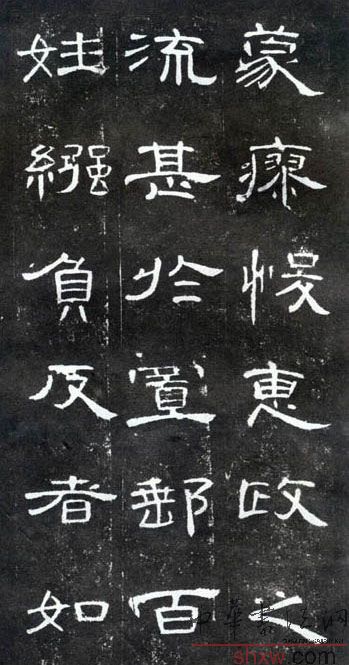 蒙瘳悛惠政之
流甚於置郵百
姓繦負反者如
中華書法网
shxw.com